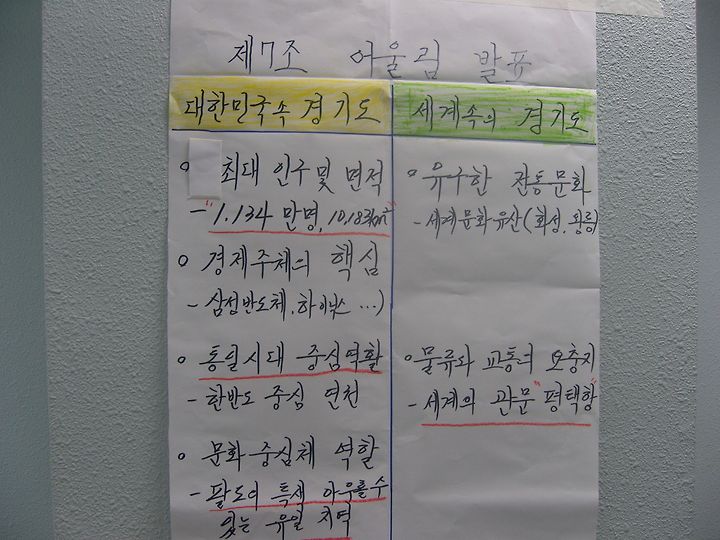 제7조 어울림 발표
대한민국속 경기도
최대 인구 및 면적
- "1.134 만명, 10,183㎢"
경제주체의 핵심
- 삼성반도체, 하이닉스 ...)
통일시대 중심역활
- 한반도 중심 연천
문화 중심체 역할
- 팔도의 특색 아우를수
있는 유일 지역
세계속의 경기도
유구한 전통문화
- 세계문화유산(화성, 왕릉)
물류와 교통의 요충지
- 세계의 관문 "평택항"